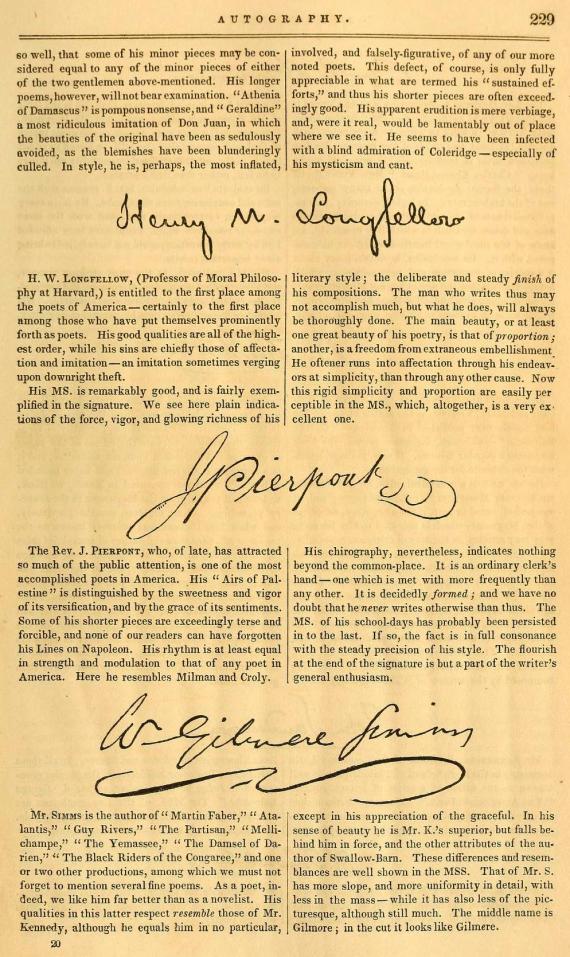 AUTOGRAPHY.
229
so well, that some of his minor pieces may be con-
sidered equal to any of the minor pieces of either
of the two gentlemen above-mentioned. His longer
poems, however, will not bear examination. "Athenia
of Damascus" is pompous nonsense, and "Geraldine"
a most ridiculous imitation of Don Juan, in which
the beauties of the original have been as sedulously
avoided, as the blemishes have been blunderingly
culled. In style, he is, perhaps, the most inflated,
involved, and falsely-figurative, of any of our more
noted poets. This defect, of course, is only fully
appreciable in what are termed his "sustained ef-
forts," and thus his shorter pieces are often exceed-
ingly good. His apparent erudition is mere verbiage,
and, were it real, would be lamentably out of place
where we see it. He seems to have been infected
with a blind admiration of Coleridge—especially of
his mysticism and cant.
Henry W. Longfellow
H. W. LONGFELLOW, (Professor of Moral Philoso-
phy at Harvard,) is entitled to the first place among
the poets of America—certainly to the first place
among those who have put themselves prominently
forth as poets. His good qualities are all of the high-
est order, while his sins are chiefly those of affecta-
tion and imitation—an imitation sometimes verging
upon downright theft.
His MS. is remarkably good, and is fairly exem-
plified in the signature. We see here plain indica-
tions of the force, vigor, and glowing richness of his
literary style; the deliberate and steady finish of
his compositions. The man who writes thus may
not accomplish much, but what he does, will always
be thoroughly done. The main beauty, or at least
one great beauty of his poetry, is that of proportion;
another, is a freedom from extraneous embellishment
He oftener runs into affectation through his endeav-
ors at simplicity, than through any other cause. Now
this rigid simplicity and proportion are easily per
ceptible in the MS., which, altogether, is a very ex-
cellent one.
J. Pierpont
The Rev. J. PIERPONT, who, of late, has attracted
so much of the public attention, is one of the most
accomplished poets in America. His "Airs of Pal-
estine" is distinguished by the sweetness and vigor
of its versification, and by the grace of its sentiments.
Some of his shorter pieces are exceedingly terse and
forcible, and none of our readers can have forgotten
his Lines on Napoleon. His rhythm is at least equal
in strength and modulation to that of any poet in
America. Here he resembles Milman and Croly.
His chirography, nevertheless, indicates nothing
beyond the common-place. It is an ordinary clerk's
hand—one which is met with more frequently than
any other. It is decidedly formed; and we have no
doubt that he never writes otherwise than thus. The
MS. of his school-days has probably been persisted
in to the last. If so, the fact is in full consonance
with the steady precision of his style. The flourish
at the end of the signature is but a part of the writer's
general enthusiasm.
W. Gilmore Simms
Mr. SIMMS is the author of "Martin Faber," "Ata-
lantis," "Guy Rivers," "The Partisan," "Melli-
champe," "The Yemassee," "The Damsel of Da-
rien," "The Black Riders of the Congaree," and one
or two other productions, among which we must not
forget to mention several fine poems. As a poet, in-
deed, we like him far better than as a novelist. His
qualities in this latter respect resemble those of Mr.
Kennedy, although he equals him in no particular,
except in his appreciation of the graceful. In his
sense of beauty he is Mr. K.'s superior, but falls be-
hind him in force, and the other attributes of the au-
thor of Swallow-Barn. These differences and resem-
blances are well shown in the MSS. That of Mr. S.
has more slope, and more uniformity in detail, with
less in the mass—while it has also less of the pic-
turesque, although still much. The middle name is
Gilmore; in the cut it looks like Gilmere.
20